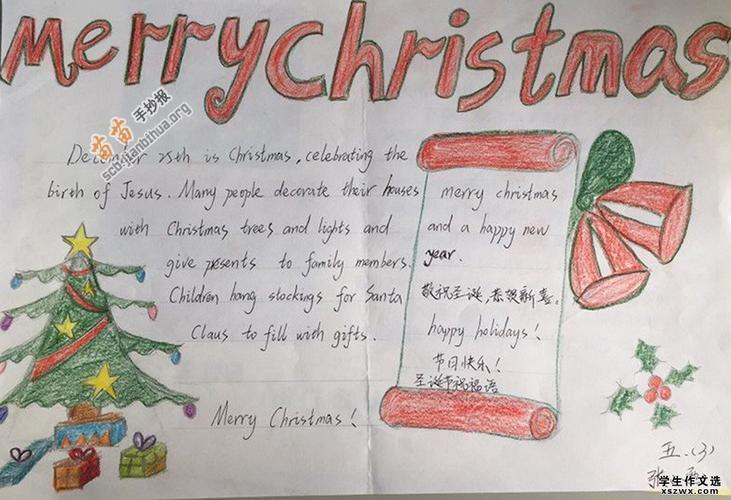 merrychristmas
苗苗手抄报
scb.jianbihua.org
December 25th is Christmas, celebrating the
birth of Jesus. Many people decorate their houses
with Christmas trees and lights and
give presents to family members.
Children hang stockings for Santa
Claus to fill with gifts.
Merry Christmas!
merry christmas
and a happy new
year.
敬祝圣诞,恭贺新喜。
happy holidays!
节日快乐!
圣诞节祝福语
五.(3)
张
学生作文选
xszwx.com